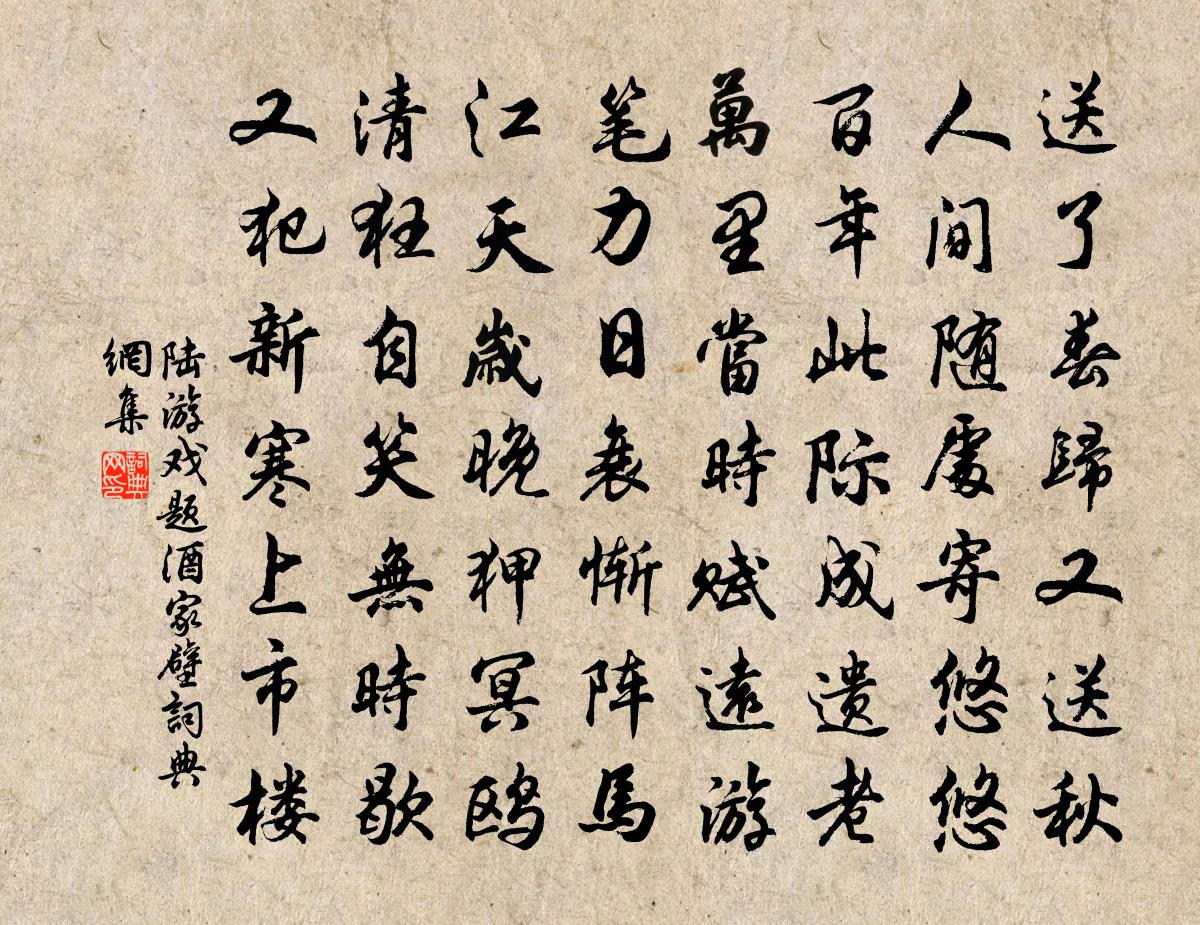 送了春歸又送秋
人間随處寄悠悠
百年此际成遗老
萬里當時赋遠游
笔力日衰惭阵馬
江天歲晚狎冥鸥
清狂自笑無時歇
又犯新寒上市楼
陆游戏题酒家壁詞典
網集
詞典
网印